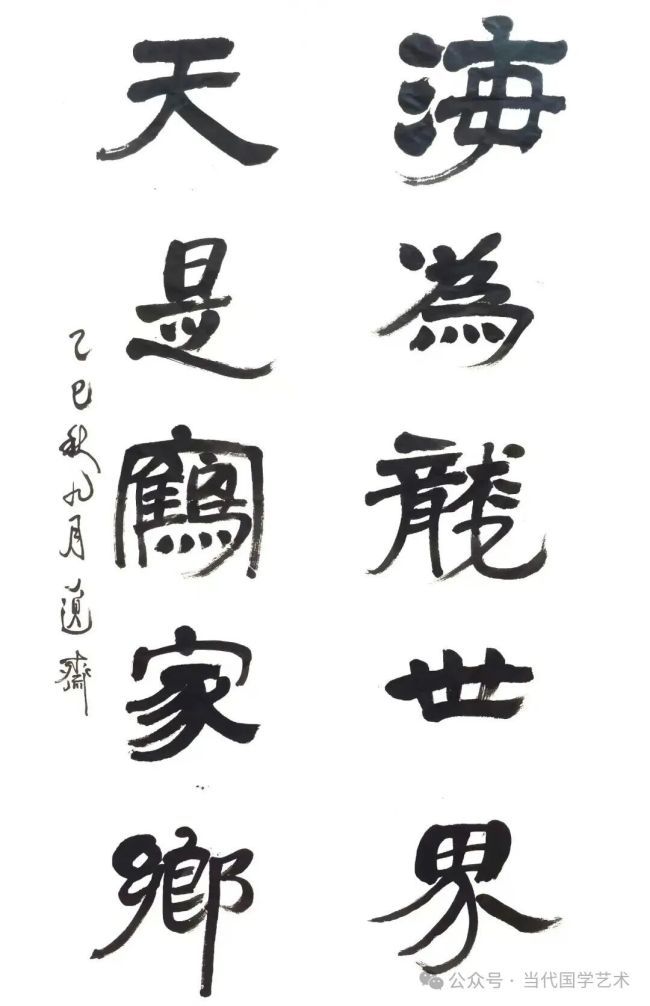 海為龍世界
天是鶴家鄉
乙巳秋九月逸齋
公众号·当代国学艺术